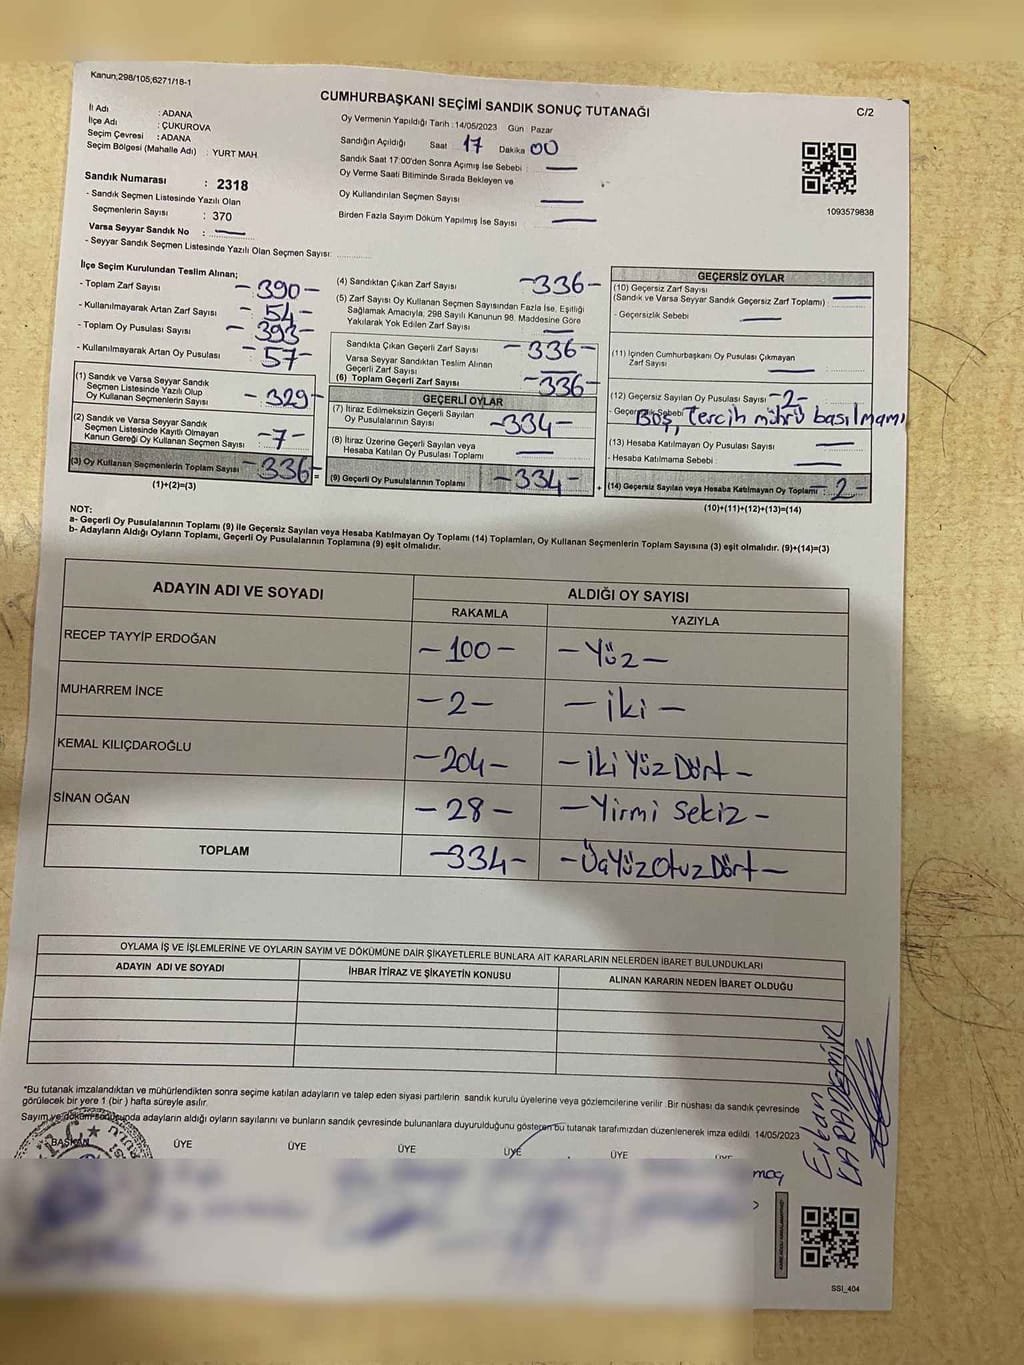 Kanun;298/105,6271/18-1
CUMHURBAŞKANI SEÇİMİ SANDIK SONUÇ TUTANAĞI
C/2
İl Adı : ADANA
İlçe Adı : ÇUKUROVA
Seçim Çevresi : ADANA
Seçim Bölgesi (Mahalle Adı) : YURT MAH.
Sandık Numarası : 2318
- Sandık Seçmen Listesinde Yazılı Olan
Seçmenlerin Sayısı : 370
Varsa Seyyar Sandık No :
- Seyyar Sandık Seçmen Listesinde Yazılı Olan Seçmen Sayısı:
Oy Vermenin Yapıldığı Tarih : 14/05/2023 Gün Pazar
Sandığın Açıldığı Saat 17 Dakika 00
Sandık Saat 17:00'den Sonra Açımış İse Sebebi :
Oy Verme Saati Bitiminde Sırada Bekleyen ve
Oy Kullandırılan Seçmen Sayısı
Birden Fazla Sayım Döküm Yapılmış İse Sayısı
1093579838
İlçe Seçim Kurulundan Teslim Alınan;
- Toplam Zarf Sayısı - 390 -
- Kullanılmayarak Artan Zarf Sayısı - 54 -
- Toplam Oy Pusulası Sayısı - 393 -
- Kullanılmayarak Artan Oy Pusulası - 57 -
(1) Sandık ve Varsa Seyyar Sandık
Seçmen Listesinde Yazılı Olup
Oy Kullanan Seçmenlerin Sayısı - 329 -
(2) Sandık ve Varsa Seyyar Sandık
Seçmen Listesinde Kayıtlı Olmayan
Kanun Gereği Oy Kullanan Seçmen Sayısı - 7 -
(3) Oy Kullanan Seçmenlerin Toplam Sayısı - 336 -
(1)+(2)=(3)
(4) Sandıktan Çıkan Zarf Sayısı - 336 -
(5) Zarf Sayısı Oy Kullanan Seçmen Sayısından Fazla İse, Eşitliği
Sağlamak Amacıyla, 298 Sayılı Kanunun 98. Maddesine Göre
Yakılarak Yok Edilen Zarf Sayısı
Sandıkta Çıkan Geçerli Zarf Sayısı - 336 -
Varsa Seyyar Sandıktan Teslim Alınan
Geçerli Zarf Sayısı
(6) Toplam Geçerli Zarf Sayısı - 336 -
GEÇERLİ OYLAR
(7) İtiraz Edilmeksizin Geçerli Sayılan
Oy Pusulalarının Sayısı - 334 -
(8) İtiraz Üzerine Geçerli Sayılan veya
Hesaba Katılan Oy Pusulası Toplamı
(9) Geçerli Oy Pusulalarının Toplamı - 334 - +
GEÇERSİZ OYLAR
(10) Geçersiz Zarf Sayısı
(Sandık ve Varsa Seyyar Sandık Geçersiz Zarf Toplamı) :
- Geçersizlik Sebebi
(11) İçinden Cumhurbaşkanı Oy Pusulası Çıkmayan
Zarf Sayısı
(12) Geçersiz Sayılan Oy Pusulası Sayısı - 2 -
- Geçersizlik Sebebi Boş, tercih mührü basılmamı
(13) Hesaba Katılmayan Oy Pusulası Sayısı
- Hesaba Katılmama Sebebi :
(14) Geçersiz Sayılan veya Hesaba Katılmayan Oy Toplamı : - 2 -
(10)+(11)+(12)+(13)=(14)
NOT:
a- Geçerli Oy Pusulalarının Toplamı (9) ile Geçersiz Sayılan veya Hesaba Katılmayan Oy Toplamı (14) Toplamları, Oy Kullanan Seçmenlerin Toplam Sayısına (3) eşit olmalıdır. (9)+(14)=(3)
b- Adayların Aldığı Oyların Toplamı, Geçerli Oy Pusulalarının Toplamına (9) eşit olmalıdır.
ADAYIN ADI VE SOYADI ALDIĞI OY SAYISI
RAKAMLA YAZIYLA
RECEP TAYYİP ERDOĞAN - 100 - - Yüz -
MUHARREM İNCE - 2 - - iki -
KEMAL KILIÇDAROĞLU - 204 - - iki Yüz Dört -
SİNAN OĞAN - 28 - - Yirmi Sekiz -
TOPLAM - 334 - - Üç Yüz Otuz Dört -
OYLAMA İŞ VE İŞLEMLERİNE VE OYLARIN SAYIM VE DÖKÜMÜNE DAİR ŞİKAYETLERLE BUNLARA AİT KARARLARIN NELERDEN İBARET BULUNDUKLARI
ADAYIN ADI VE SOYADI İHBAR İTİRAZ VE ŞİKAYETİN KONUSU ALINAN KARARIN NEDEN İBARET OLDUĞU
*Bu tutanak imzalandıktan ve mühürlendikten sonra seçime katılan adayların ve talep eden siyasi partilerin sandık kurulu üyelerine veya gözlemcilerine verilir .Bir nüshası da sandık çevresinde
görülecek bir yere 1 (bir ) hafta süreyle asılır.
Sayım ve döküm sonucunda adayların aldığı oyların sayılarını ve bunların sandık çevresinde bulunanlara duyurulduğunu gösteren bu tutanak tarafımızdan düzenlenerek imza edildi. 14/05/2023
BAŞKAN ÜYE ÜYE ÜYE ÜYE ÜYE
Erkan
KARADEMİR
SSI_404